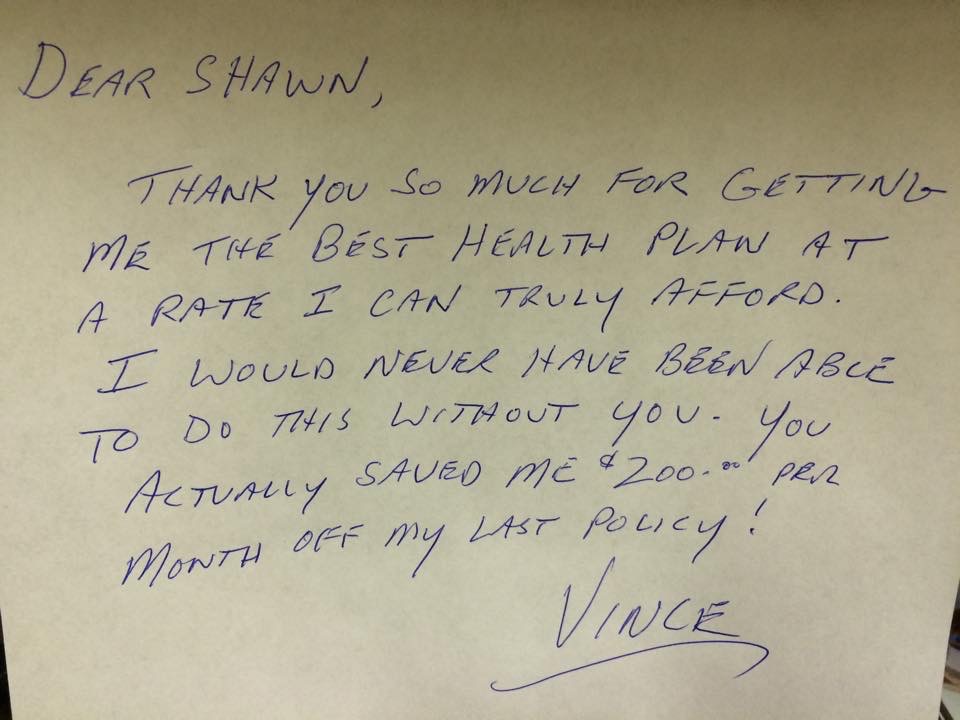 DEAR SHAWN,
THANK YOU SO MUCH FOR GETTING
ME THE BEST HEALTH PLAN AT
A RATE I CAN TRULY AFFORD.
I WOULD NEVER HAVE BEEN ABLE
TO DO THIS WITHOUT YOU. YOU
ACTUALLY SAVED ME $200.00 PER
MONTH OFF MY LAST POLICY!
VINCE